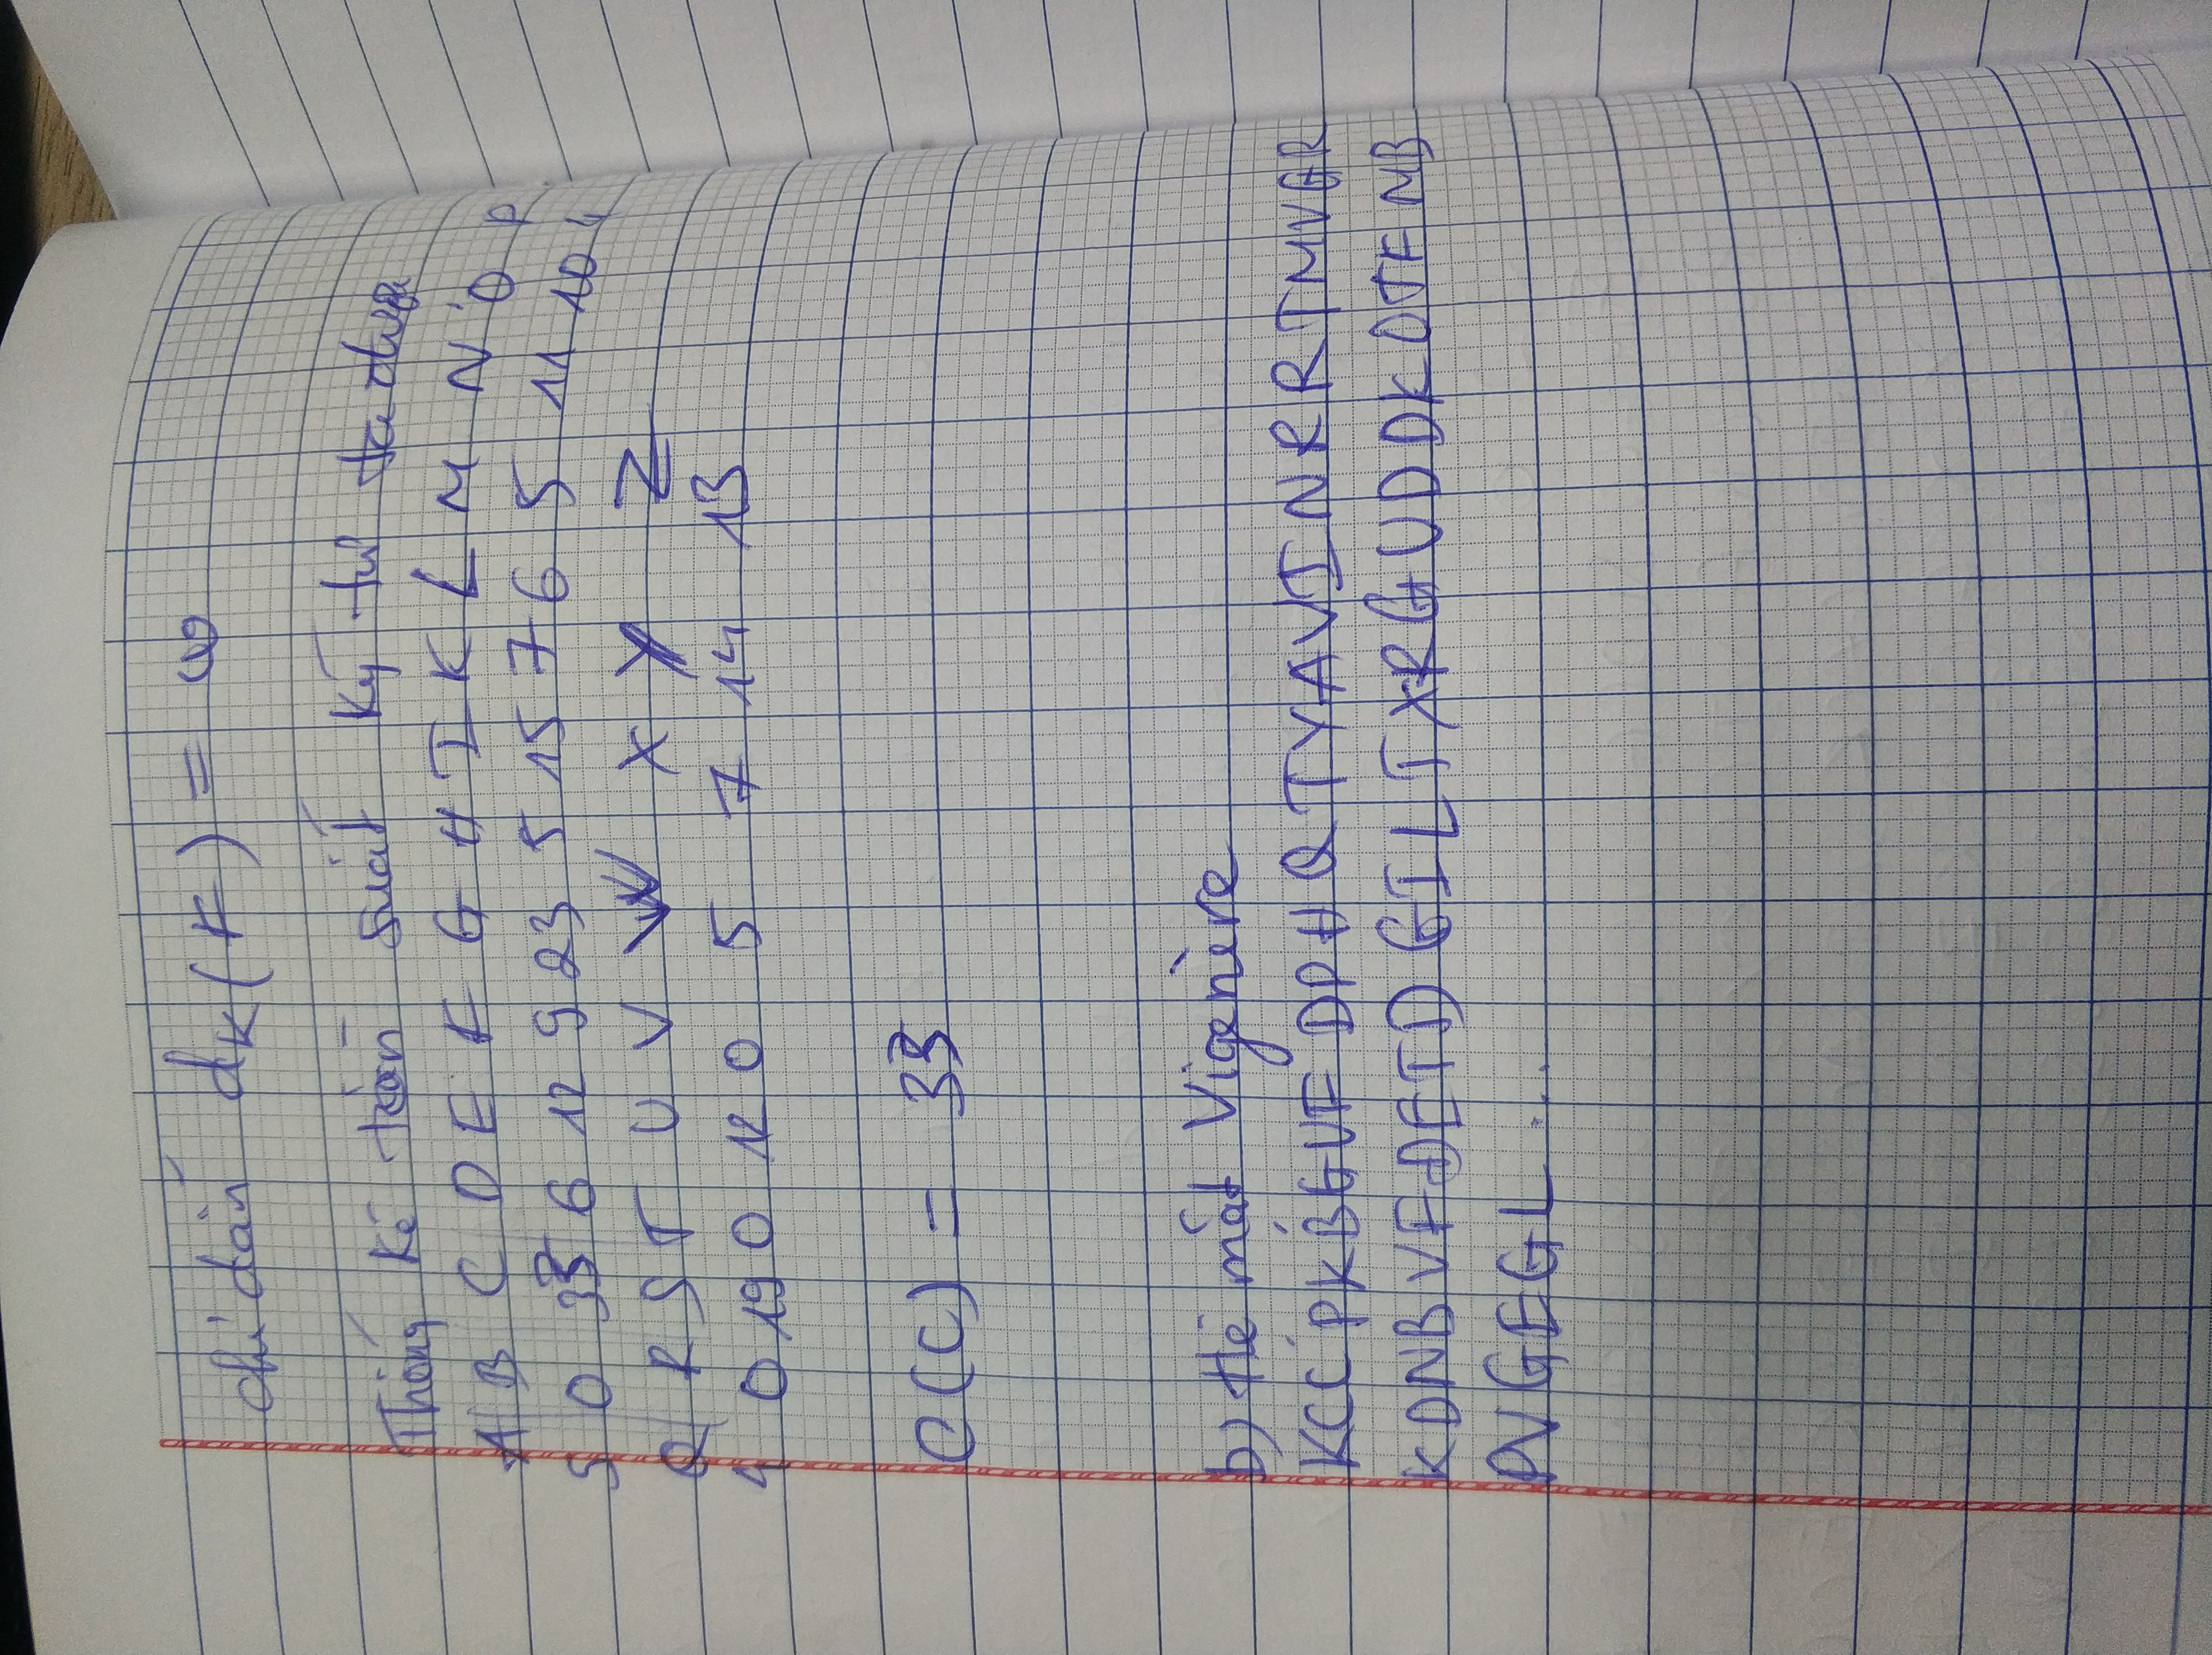 chỉ dẫn dK(F) = ω
Thống kê tần suất ký tự ta được
A B C D E F G H I K L M N O P
5 0 33 6 12 9 23 5 15 7 6 5 11 10 4
Q R S T U V W X Y Z
4 0 19 0 12 0 5 7 14 13
e(C) = 33
b) Hệ mật Vigenère
KCCPKBGUFDPHQTYAVINRRTMVGR
KDNBVFDETDGILTXRGUDDKOTFMB
PVGEGL ...